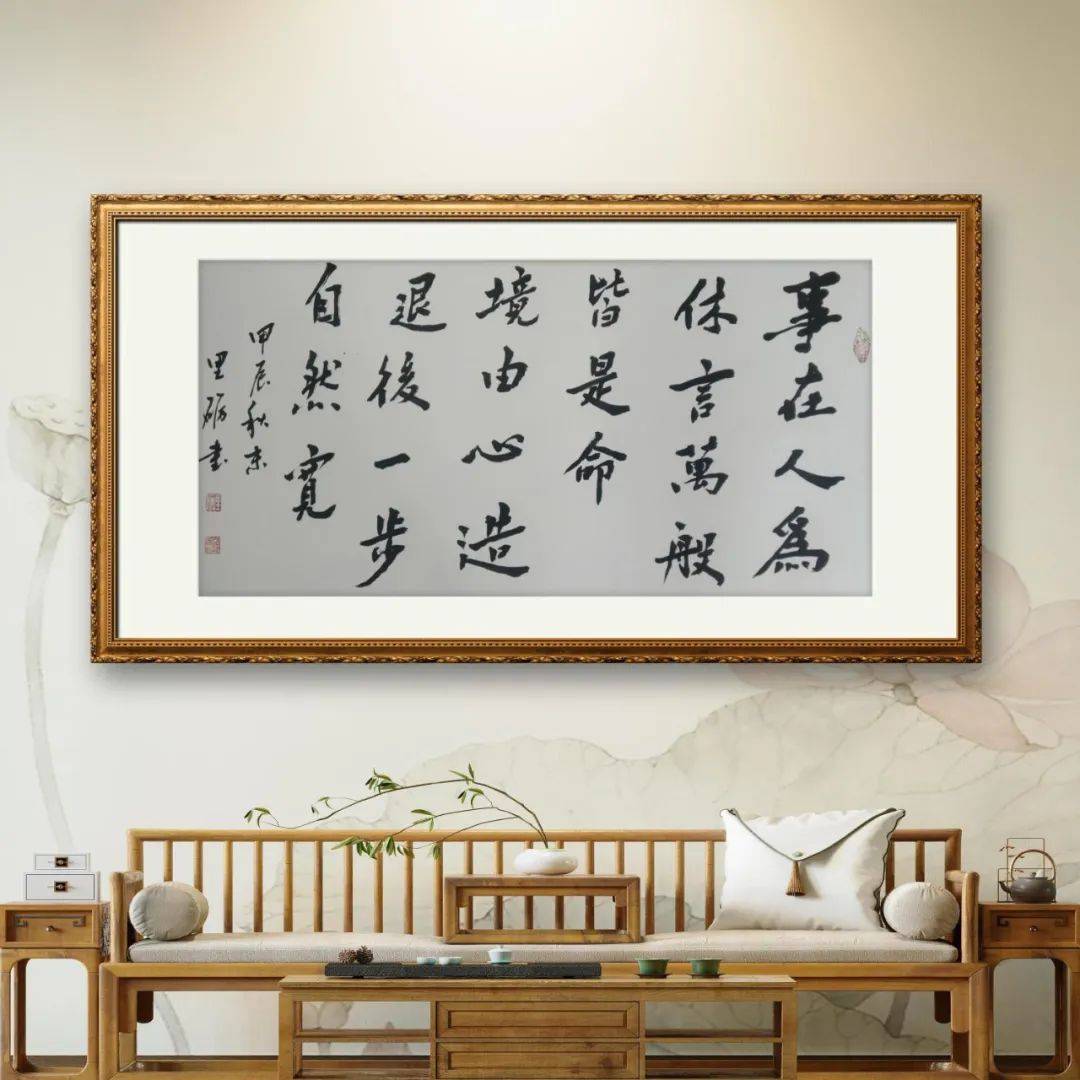 事在人為
休言萬般
皆是命
境由心造
退後一步
自然寬
甲辰秋末
里礪书